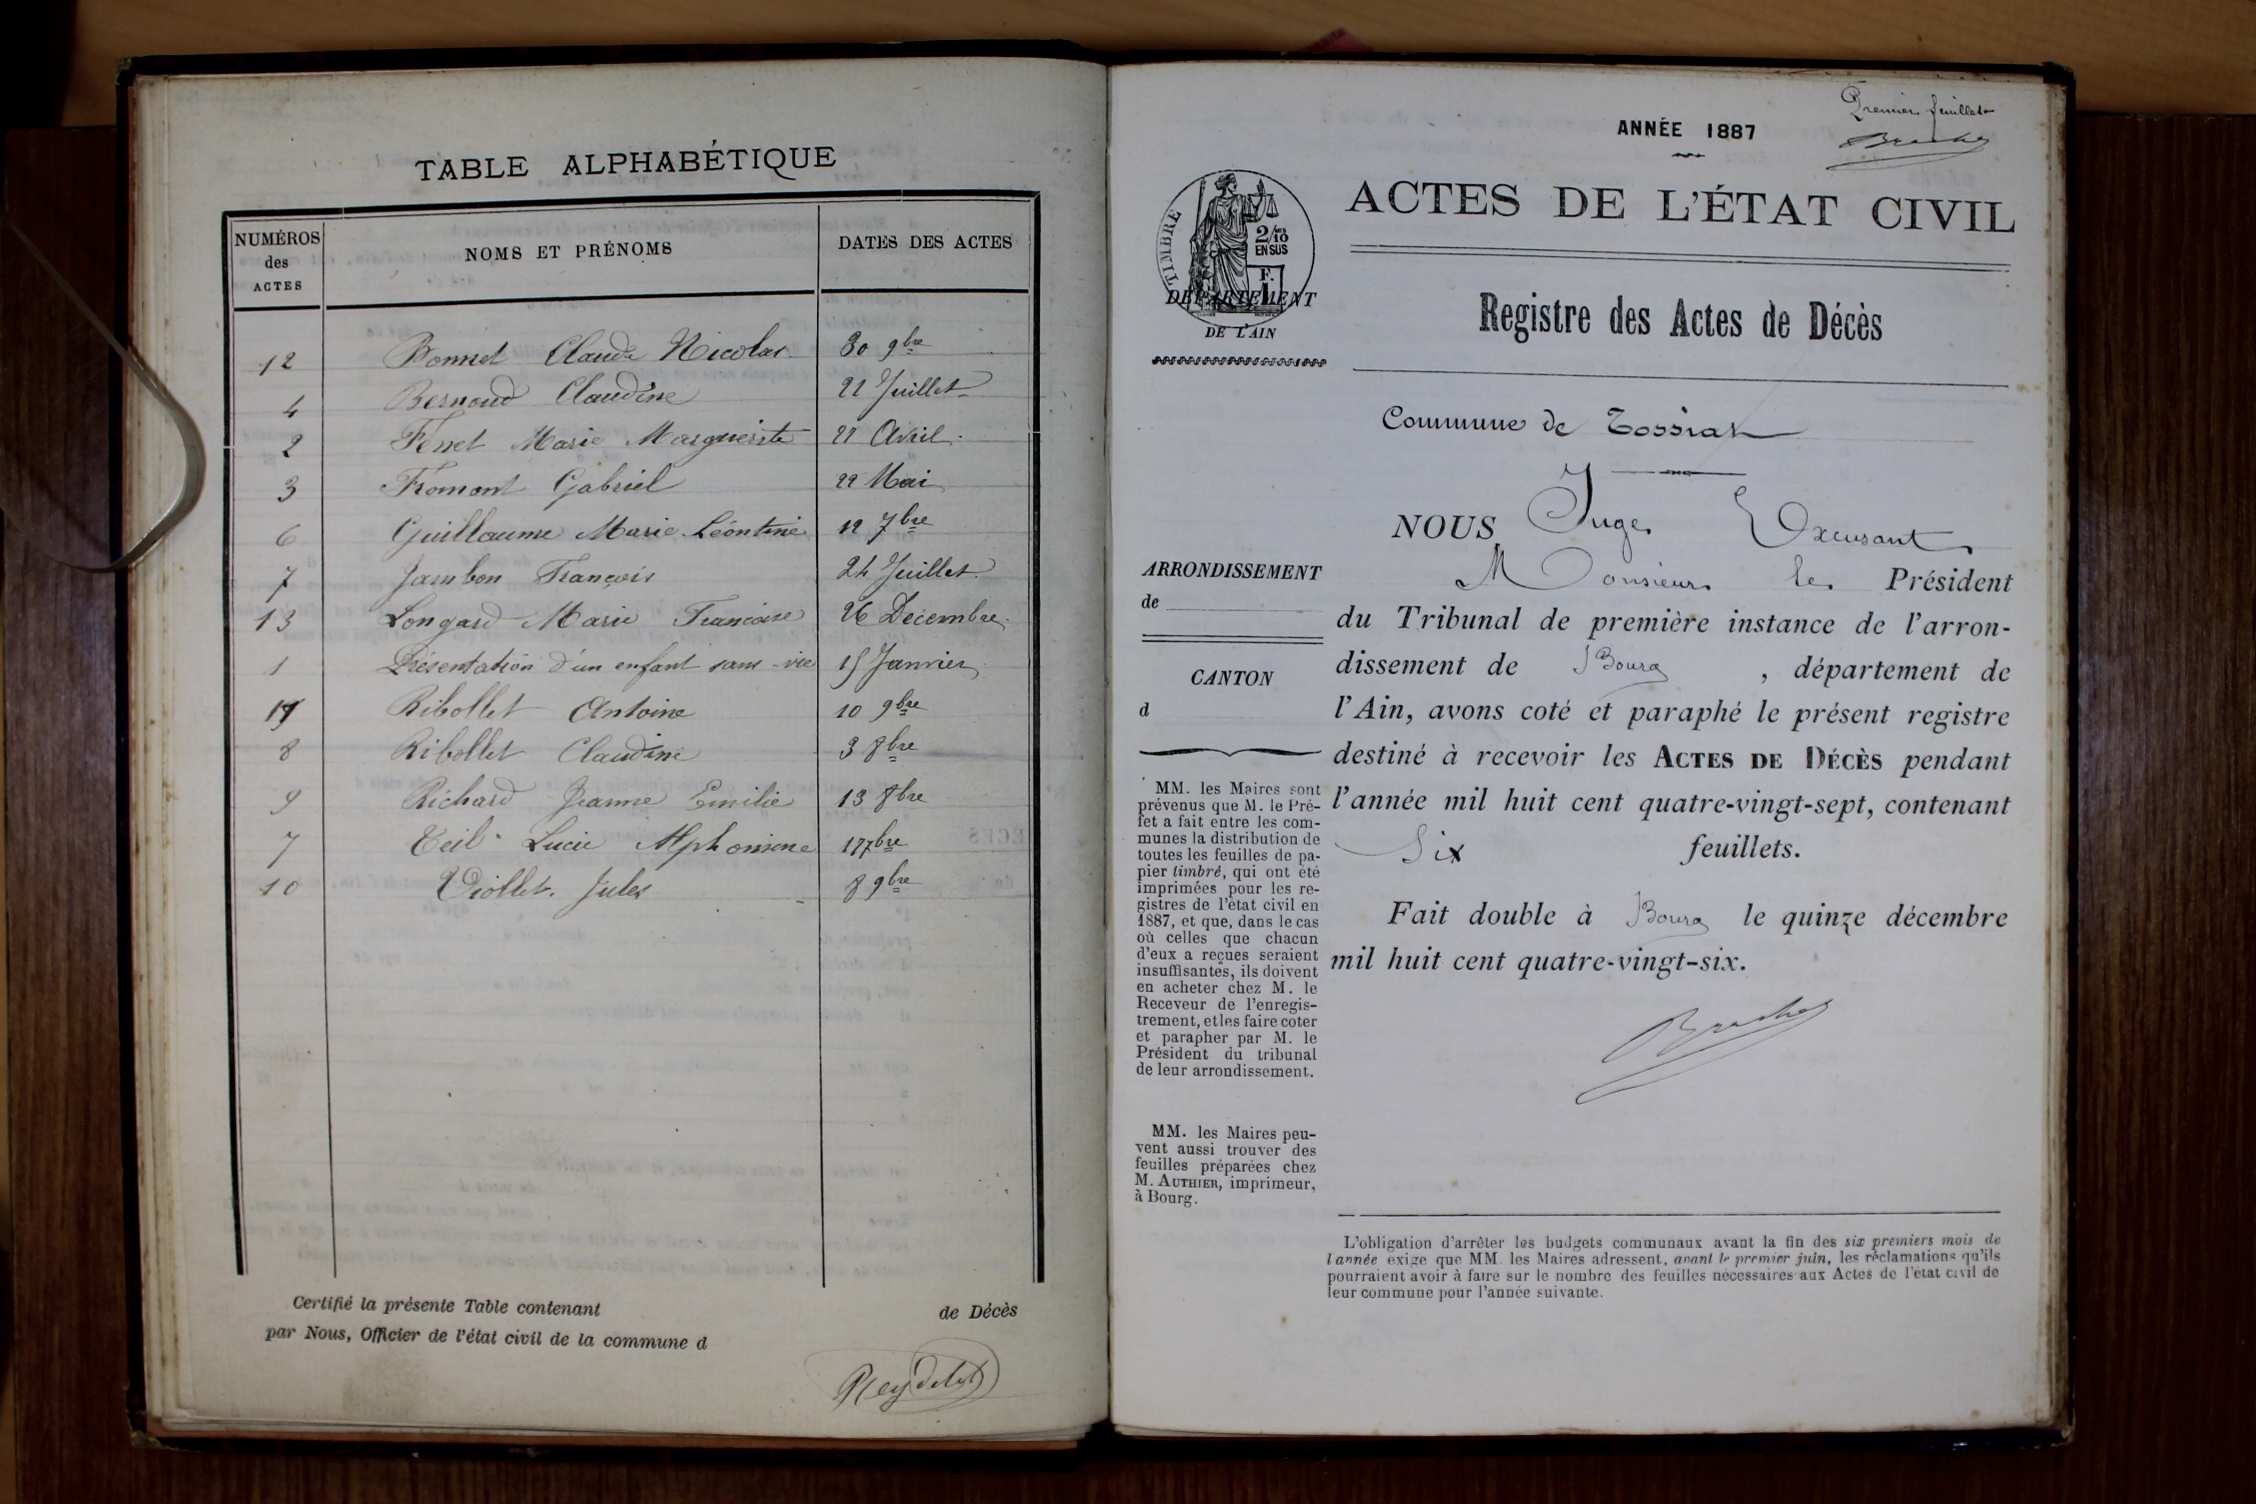 TABLE ALPHABÉTIQUE
NUMÉROS des ACTES NOMS ET PRÉNOMS DATES DES ACTES
12 Bonnet Claude Nicolas 30 9bre
4 Bernoud Claudine 21 Juillet
2 Ferret Marie Marguerite 21 Avril
3 Fromont Gabriel 22 Mai
6 Guillaume Marie Léontine 12 7bre
7 Jambon François 24 Juillet
13 Longard Marie Francoise 26 Décembre
1 Présentation d'un enfant sans vie 15 Janvier
Ribollet Antoine 10 9bre
8 Ribollet Claudine 3 8bre
9 Richard Jeanne Emilie 13 8bre
7 Teil Lucie Alphonsine 17 7bre
10 Viollet Jules 8 9bre
Certifié la présente Table contenant de Décès
par Nous, Officier de l'état civil de la commune d
Reydelet
Premier feuillet
ANNÉE 1887
ACTES DE L'ÉTAT CIVIL
TIMBRE
2/10 EN SUS
F. 1
DÉPARTEMENT
DE L'AIN
Registre des Actes de Décès
Commune de Tossiat
NOUS Juge Excusant
Monsieur le Président
du Tribunal de première instance de l'arron-
dissement de Bourg, département de
l'Ain, avons coté et paraphé le présent registre
destiné à recevoir les ACTES DE DÉCÈS pendant
l'année mil huit cent quatre-vingt-sept, contenant
Six feuillets.
Fait double à Bourg le quinze décembre
mil huit cent quatre-vingt-six.
ARRONDISSEMENT
de
CANTON
d
MM. les Maires sont
prévenus que M. le Pré-
fet a fait entre les com-
munes la distribution de
toutes les feuilles de pa-
pier timbré, qui ont été
imprimées pour les re-
gistres de l'état civil en
1887, et que, dans le cas
où celles que chacun
d'eux a reçues seraient
insuffisantes, ils doivent
en acheter chez M. le
Receveur de l'enregis-
trement, et les faire coter
et parapher par M. le
Président du tribunal
de leur arrondissement.
MM. les Maires peu-
vent aussi trouver des
feuilles préparées chez
M. AUTHIER, imprimeur,
à Bourg.
L'obligation d'arrêter les budgets communaux avant la fin des six premiers mois de
l'année exige que MM. les Maires adressent, avant le premier juin, les réclamations qu'ils
pourraient avoir à faire sur le nombre des feuilles nécessaires aux Actes de l'état civil de
leur commune pour l'année suivante.